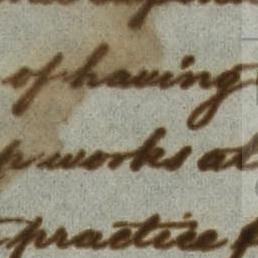 of having
works at
practice